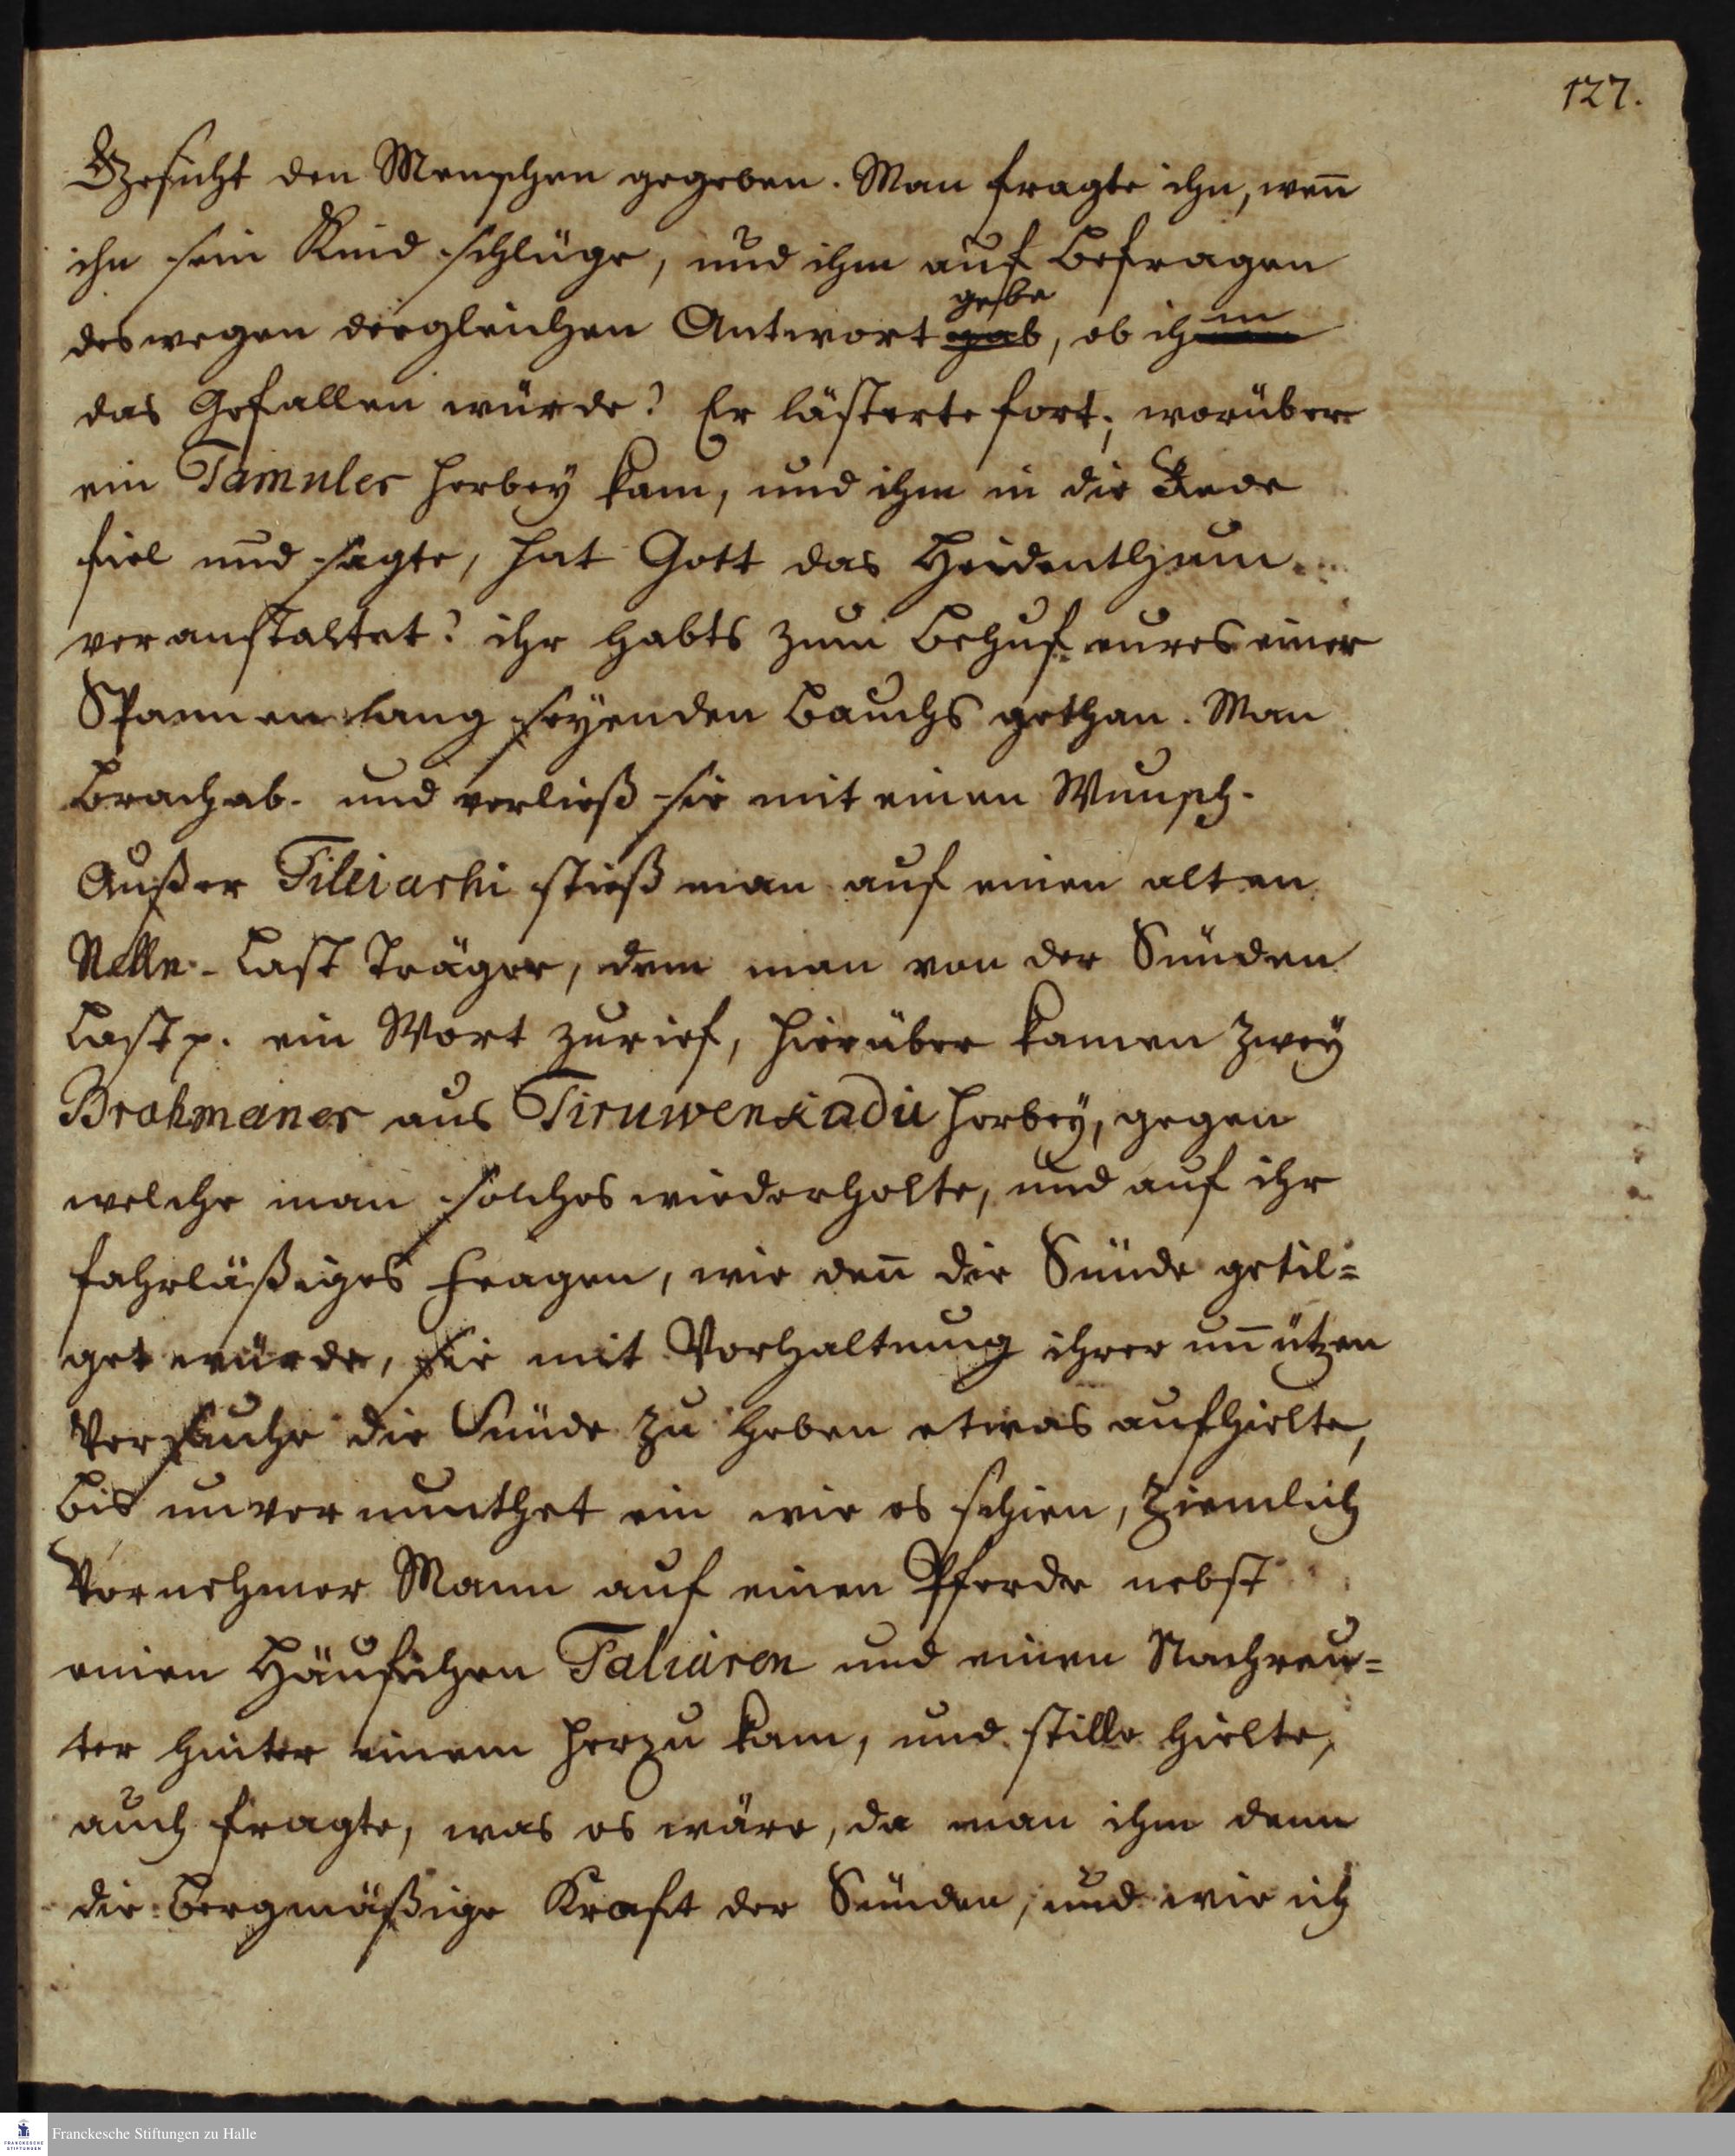 127.
Gesicht den Menschen gegeben. Man fragte ihn, wen̄
ihn sein Kind schlüge, und ihm auf Befragen
deswegen dergleichen Antwort gab gebe, ob ihm
das Gefallen würde? Er lästerte fort; worüber
ein Tamuler herbey kam, und ihm in die Rede
fiel und sagte, hat Gott das Heidenthum
veranstaltet? ihr habts zum Behuf eures einer
Spannen lang seyenden Bauchs gethan. Man
Brach ab. und verließ sie mit einen Wunsch.
Außer Tileiarhi stieß man auf einen alten
Nelle-Last Träger, dem man von der Sünden
Last p. ein Wort zurief, hierüber kamen zwey
Brahmaner aus Tiruwenkadu herbey, gegen
welche man solches wiederholte, und auf ihr
fahrläßiges Fragen, wie den̄ die Sünde getil=
get würde, sie mit Vorhaltung ihrer un̄ützen
Versuche die Sünde zu heben etwas aufhielte,
bis unvermuthet ein wie es schien, ziemlich
Vornehmer Mann auf einen Pferde nebst
einen Häufchen Taliaren und einen Nachreu=
ter hinter einem herzu kam, und stille hielte,
auch fragte, was es wäre, da man ihm denn
die bergmäßige Kraft der Sünden, und wie ich
Franckesche Stiftungen zu Halle